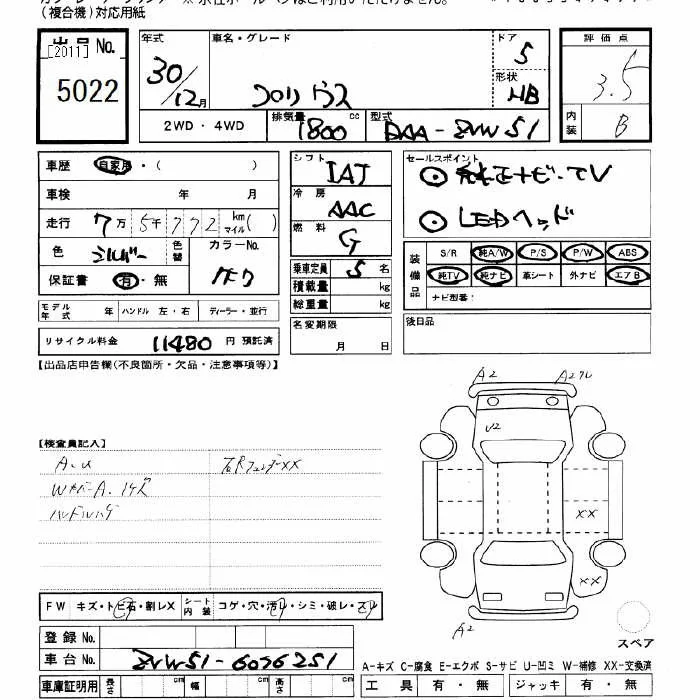 (複合機)対応用紙
出品 No.
[2011]
5022
年式
車名・グレード
ドア
5
評価点
30/12月
プリウス
形状
HB
3.5
2WD・4WD
排気量 cc
1800
型式
DAA-ZVW51
内装
B
車歴 自家用・( )
車検 年 月
走行 7万 5千 772 km マイル( )
色 シルバー 色替 カラーNo.
保証書 有・無
1F7
シフト
IAT
冷房
AAC
燃料
G
乗車定員 5 名
積載量 kg
総重量 kg
セールスポイント
◎純正ナビ・TV
◎LEDヘッド
装備品
S/R 純A/W P/S P/W ABS
純TV 純ナビ 革シート 外ナビ エアB
ナビ型番:
モデル年式 年 ハンドル 左・右 ディーラー・並行
名変期限
月 日
後日品
リサイクル料金 11480 円 預託済
【出品店申告欄(不良箇所・欠品・注意事項等)】
A2
A2ワレ
U2
【検査員記入】
A.U
右Rフェンダ-XX
Wカバ-A.コケズ
ハンドルハゲ
XX
XX
A2
FW キズ・トビ石・割レX シート内装 コゲ・穴・汚レ・シミ・破レ・スレ
スペア
登録 No.
車台 No. ZVW51-6076251
A-キズ C-腐食 E-エクボ S-サビ U-凹ミ W-補修 XX-交換済
車庫証明用 長さ cm 幅 cm 高さ cm
工具 有・無 ジャッキ 有・無